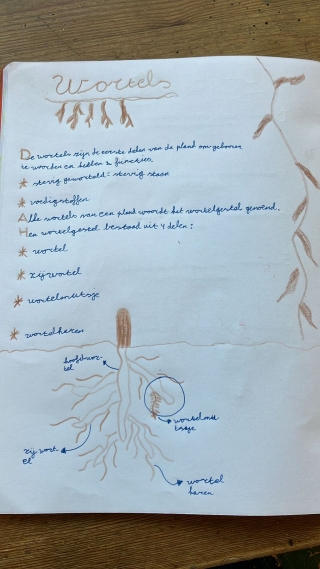 Wortels
De wortels zijn de eerste delen van de plant om geboren
te worden en hebben 2 functies.
* stevig geworteld = stevig staan
* voedingstoffen
Alle wortels van een plant woordt het wortelgestel genoemd.
Hen wortelgestel bestaad uit 4 delen:
* wortel
* zijwortel
* wortelmutsje
* wortelharen
hoofdwor-
tel
wortelmu
tsje
zijwort
el
wortel
haren